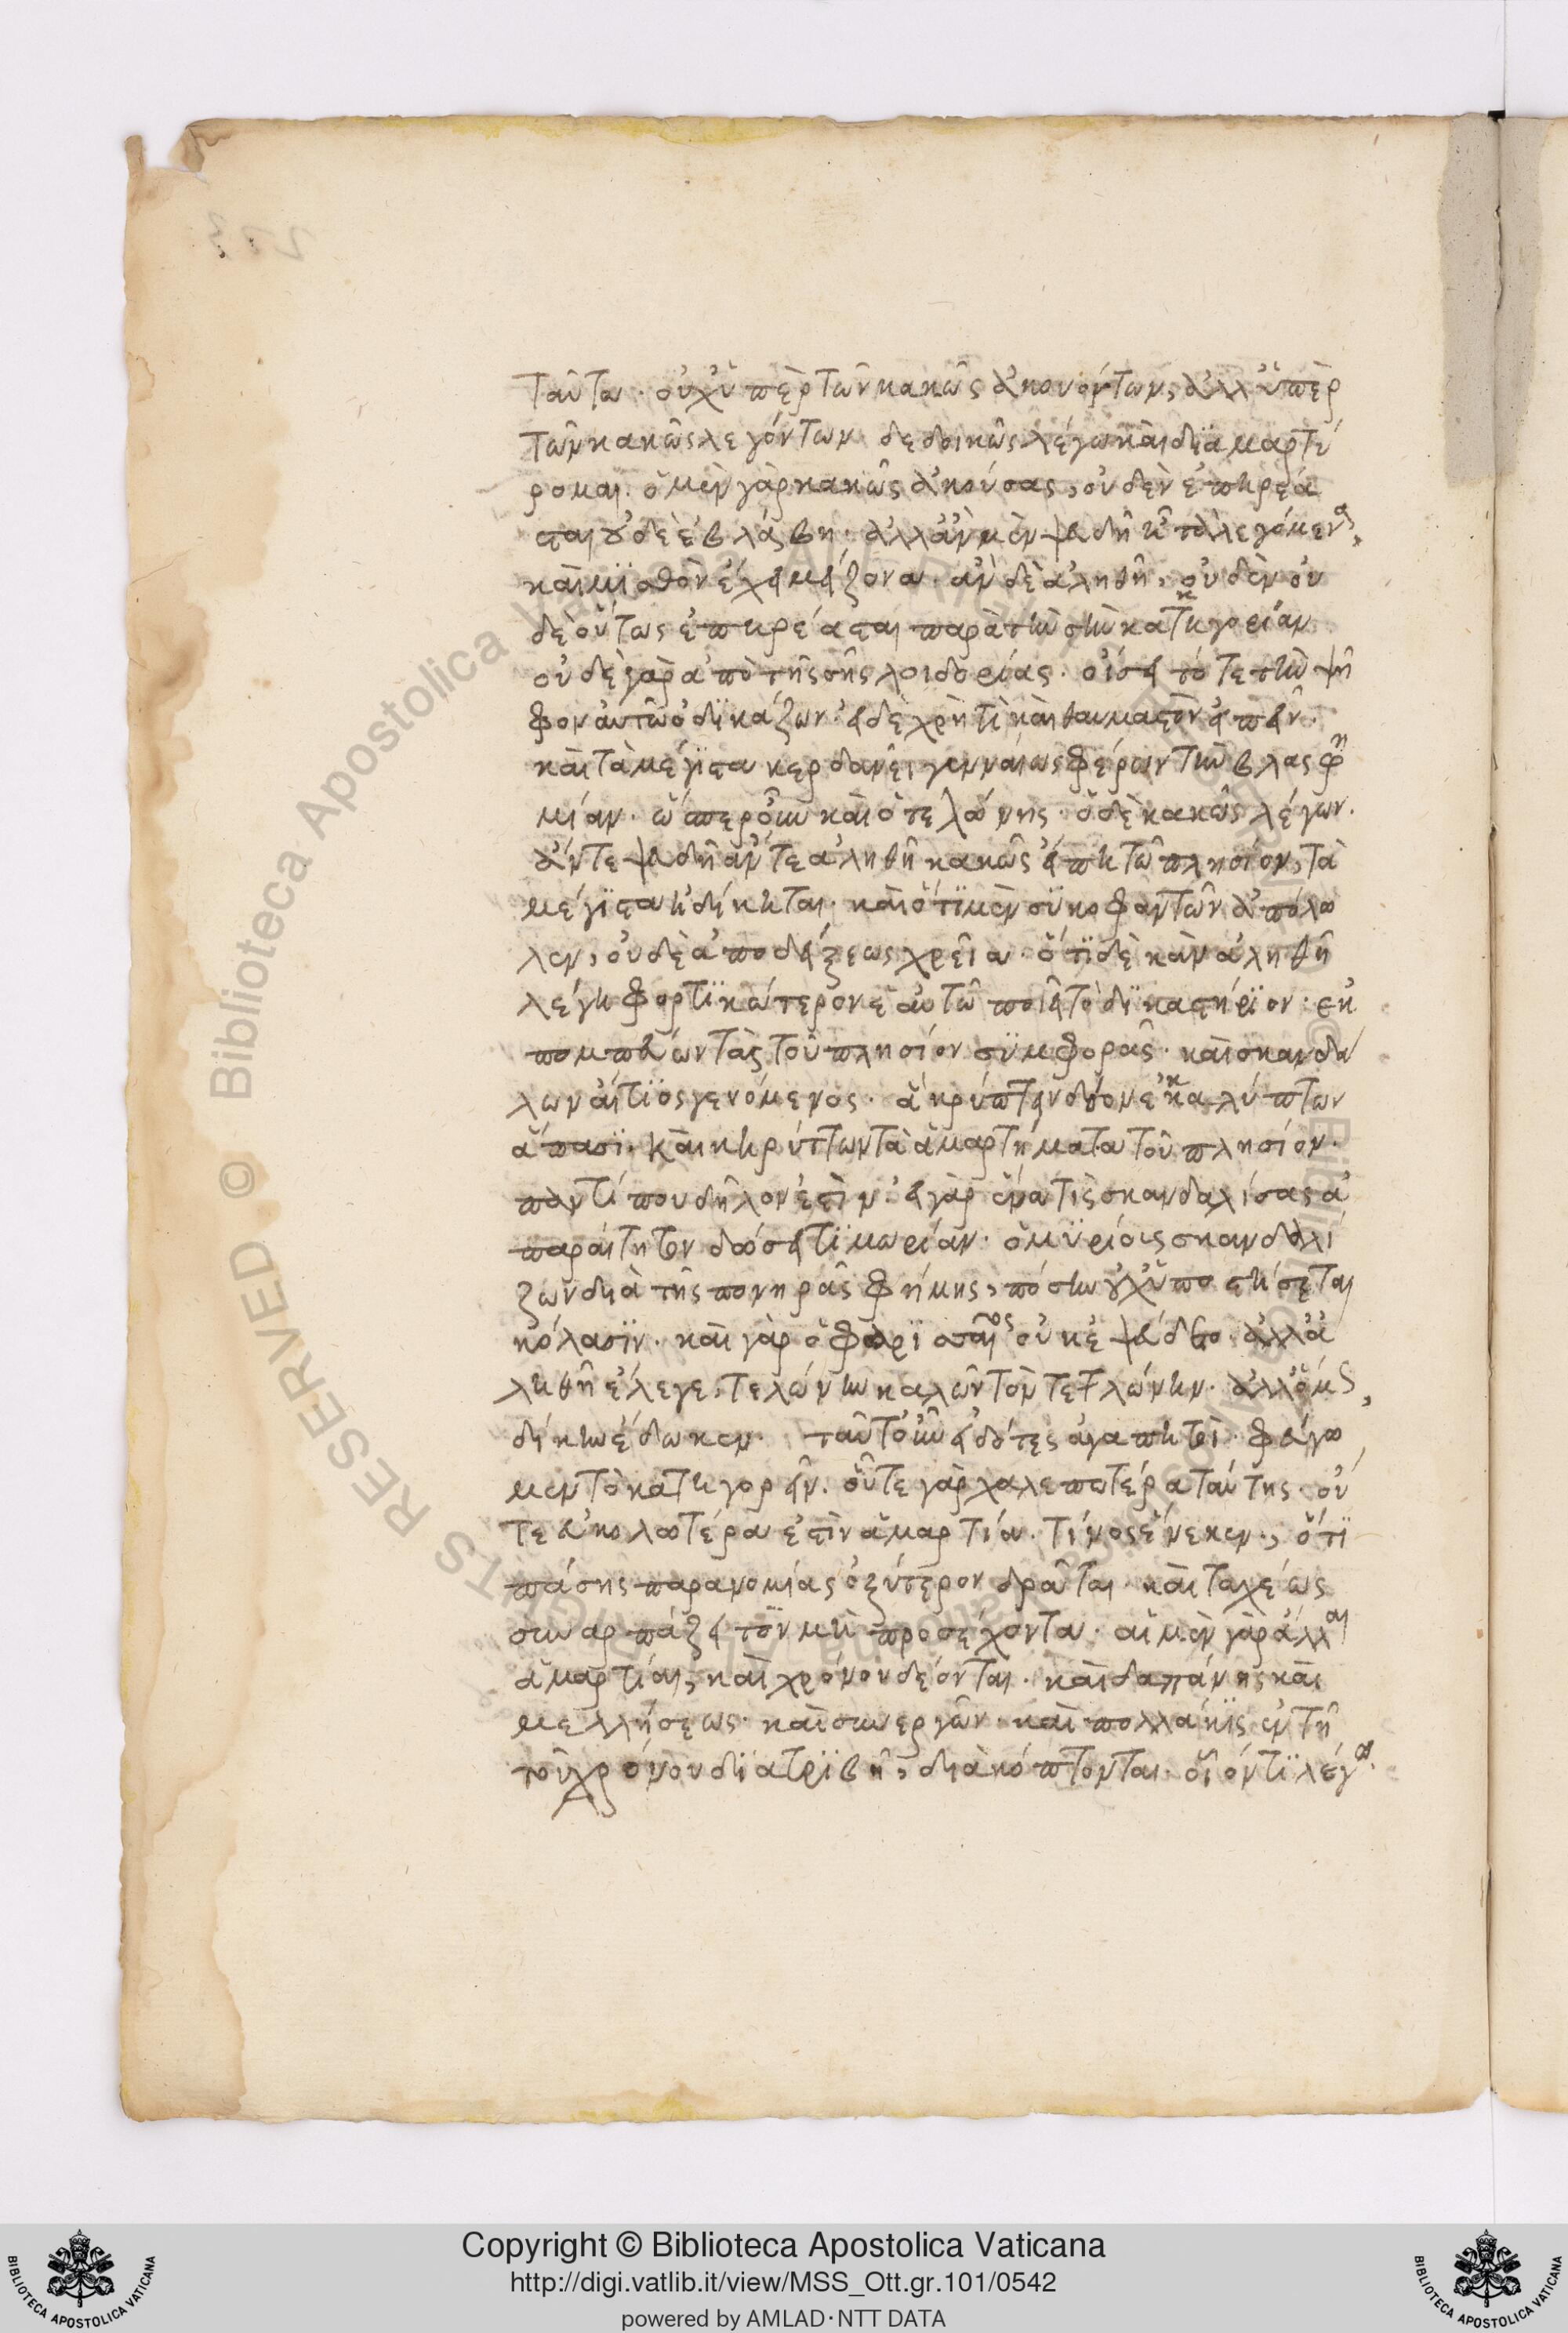 ταῦτα· οὐχ ὑπὲρ τῶν κακῶς ἀκουόντων, ἀλλ' ὑπὲρ
τῶν κακῶς λεγόντων δεδοικὼς λέγω καὶ διαμαρτύ
ρομαι. ὁ μὲν γὰρ κακῶς ἀκούσας, οὐδὲν ἐπηρέα
σται οὐδὲ ἐβλάβη· ἀλλ' ἂν μὲν ψευδῆ ᾖ τὰ λεγόμενα,
καὶ μισθὸν ἔχει μείζονα· ἂν δὲ ἀληθῆ, οὐδὲν οὐ
δὲ οὕτως ἐπηρέασται παρὰ τὴν σὴν κατηγορίαν
οὐδὲ γὰρ ἀπὸ τῆς σῆς λοιδορίας· οἴσει τότε τὴν ψῆ
φον αὐτῷ ὁ δικάζων· εἰ δὲ χρή τι καὶ θαυμαστὸν εἰπεῖν·
καὶ τὰ μέγιστα κερδανεῖ γενναίως φέρων τὴν βλασφη
μίαν· ὥσπερ οὖν καὶ ὁ τελώνης· ὁ δὲ κακῶς λέγων·
ἄν τε ψευδῆ ἄν τε ἀληθῆ κακῶς εἴπῃ τῷ πλησίον, τὰ
μέγιστα ἠδίκηται· καὶ ὅτι μὲν συκοφαντῶν ἀπόλω
λεν, οὐδὲ ἀποδείξεως χρεία· ὅτι δὲ κἂν ἀληθῆ
λέγῃ φορτικώτερον ἑαυτῷ ποιεῖ τὸ δικαστήριον· ἐκ
πομπεύων τὰς τοῦ πλησίον συμφοράς· καὶ σκανδά
λων αἴτιος γενόμενος· ἃ κρύπτειν δέον ἐκκαλύπτων
ἅπασι· καὶ κηρύττων τὰ ἁμαρτήματα τοῦ πλησίον·
παντί που δῆλον ἐστίν· εἰ γὰρ ἕνα τις σκανδαλίσας ἀ
παραίτητον δώσει τιμωρίαν· ὁ μυρίους σκανδαλί
ζων διὰ τῆς πονηρᾶς φήμης, πόσην οὐχ ὑποστήσεται
κόλασιν· καὶ γὰρ ὁ φαρισαῖος οὐκ ἐψεύδετο· ἀλλ' ἀ
ληθῆ ἔλεγε, τελώνην καλῶν τὸν τελώνην· ἀλλ' ὅμως,
δίκην ἔδωκεν· ταῦτ' οὖν εἰδότες ἀγαπητοί· φεύγω
μεν τὸ κατηγορεῖν. οὔτε γὰρ χαλεπωτέρα ταύτης οὔ
τε εὐκολωτέρα ἐστὶν ἁμαρτία. τίνος ἕνεκεν·, ὅτι
πάσης παρανομίας ὀξύτερον δρᾶται· καὶ ταχέως
συναρπάζει τὸν μὴ προσέχοντα· αἱ μὲν γὰρ ἄλλαι
ἁμαρτίαι, καὶ χρόνου δέονται· καὶ δαπάνης καὶ
μελλήσεως· καὶ συνεργῶν· καὶ πολλάκις ἐν τῇ
τοῦ χρόνου διατριβῇ, διακόπτονται. οἷόν τι λέγω.
Copyright © Biblioteca Apostolica Vaticana
http://digi.vatlib.it/view/MSS_Ott.gr.101/0542
powered by AMLAD·NTT DATA